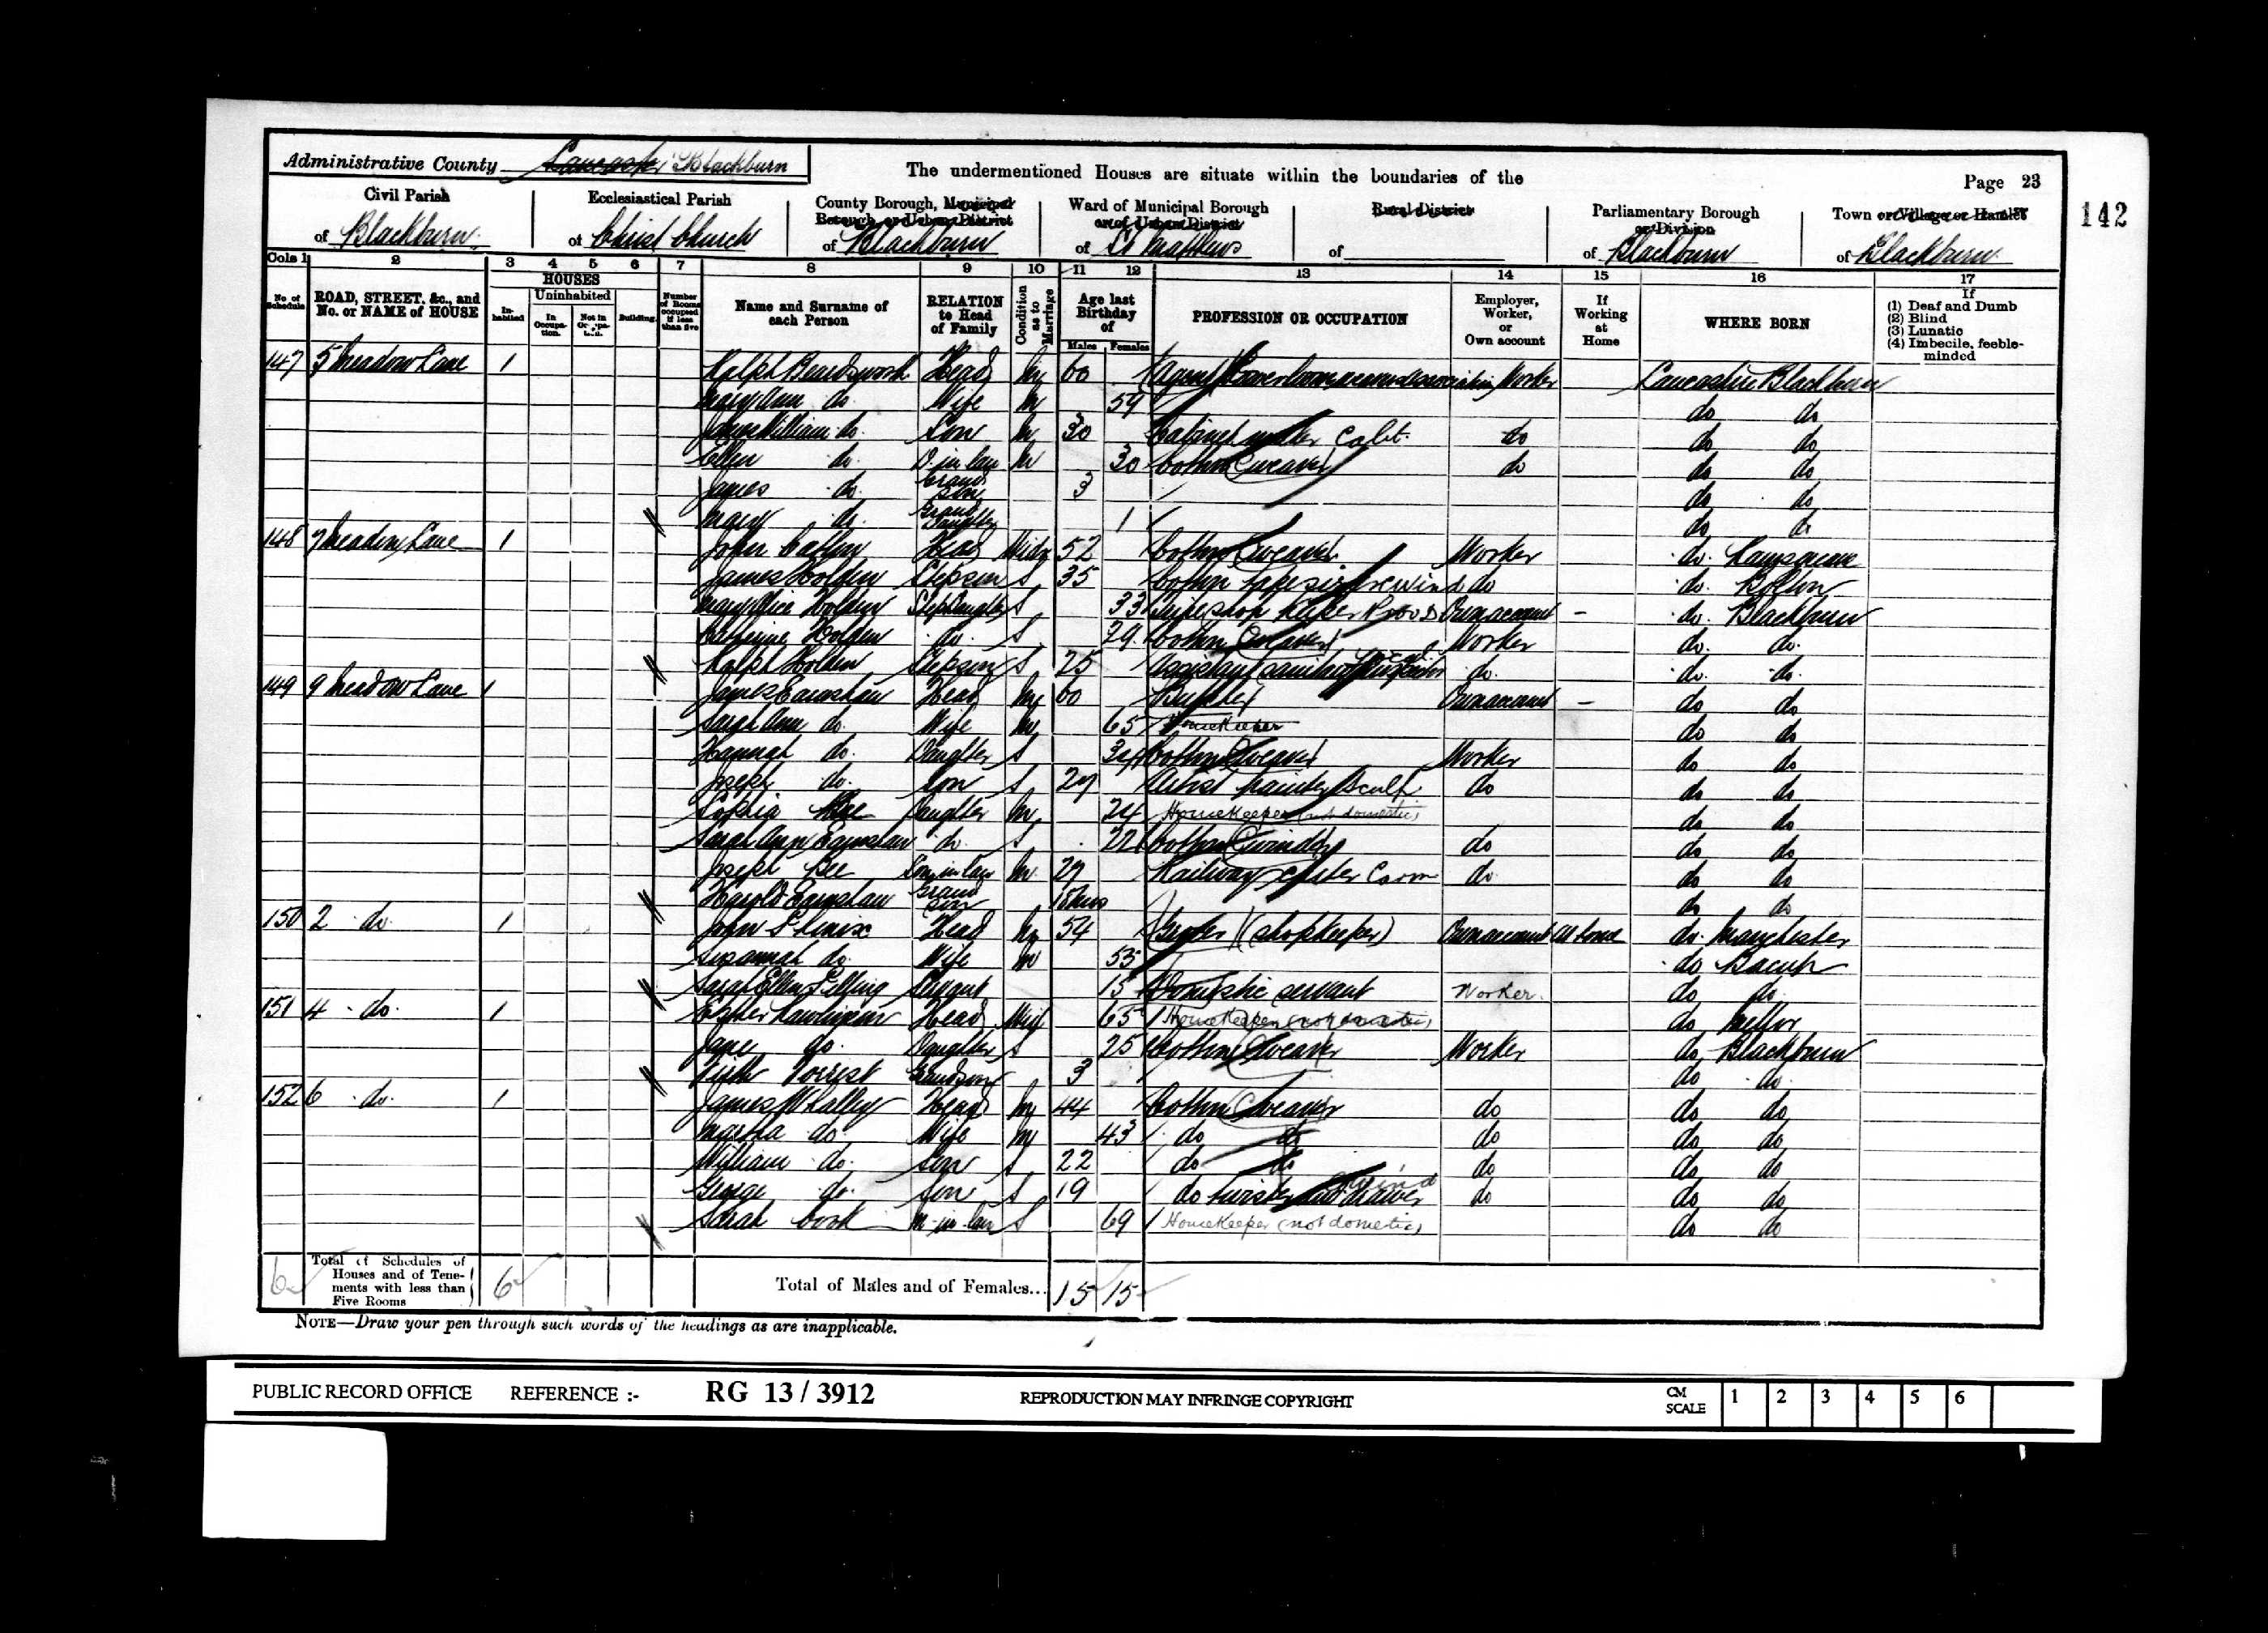 Administrative County Lancaster Blackburn
The undermentioned Houses are situate within the boundaries of the
Page 23
142
Civil Parish of Blackburn
Ecclesiastical Parish of Christ Church
County Borough, Municipal Borough, or Urban District of Blackburn
Ward of Municipal Borough or of Urban District of St Matthews
Rural District of
Parliamentary Borough or Division of Blackburn
Town or Village or Hamlet of Blackburn
Cols 1 2 3 4 5 6 7 8 9 10 11 12 13 14 15 16 17
No of Schedule
ROAD, STREET, &c., and No. or NAME of HOUSE
HOUSES
Inhabited
Uninhabited
In Occupation.
Not in Occupation.
Building.
Number of Rooms occupied if less than five
Name and Surname of each Person
RELATION to Head of Family
Condition as to Marriage
Age last Birthday of
Males Females
PROFESSION OR OCCUPATION
Employer, Worker, or Own account
If Working at Home
WHERE BORN
If (1) Deaf and Dumb (2) Blind (3) Lunatic (4) Imbecile, feeble-minded
147 5 Meadow Lane 1 Ralph Beardsworth Head M 60 Agent Powerloom weavers association Worker Lancashire Blackburn
Mary Ann do. Wife M 59 do do
James William do. Son M 30 Cabinet maker Cabt. do do do
Ellen do. D. in law M 30 Cotton Weaver do do do
James do. Grand Son 3 do do
Mary do. Grand Daughter 1 do do
148 7 Meadow Lane 1 John Head Widr 52 Cotton Weaver Worker do.
James Holden Stepson S 35 Cotton do do. Bolton
Mary Alice Holden StepDaughter S 33 shop keeper Own account - do. Blackburn
Catherine Holden do. S 29 Cotton Weaver Worker do. do.
Ralph Holden Stepson S 25 Assistant Sanitary Inspector do. do. do.
149 9 Meadow Lane 1 James Earnshaw Head M 60 Own account - do do
Sarah Ann do. Wife M 65 Housekeeper do do
Hannah do. Daughter S Cotton Weaver Worker do do
Joseph do. Son S 29 Artist painter Sculp. do do do
Sophia Bee Daughter M 24 Housekeeper (not domestic) do do
Sarah Ann Earnshaw do. S 22 Cotton Winder do do do
Joseph Bee Son in law M 29 Railway do do do
Harold Earnshaw Grand Son do do
150 2 do. 1 John Head M 54 (shopkeeper) Own account At home do. Manchester
Susannah do. Wife M 53 do Bacup
Sarah Ellen Servant 15 Domestic servant Worker. do do.
151 4 do. 1 Esther Rawlinson Head Wid 65 Housekeeper (not domestic) do Mellor
Jane do. Daughter S 25 Cotton Weaver Worker do Blackburn
Forrest Grandson 3 do do.
152 6 do. 1 James Whalley Head M 44 Cotton Weaver do do do
Martha do. Wife M 43 do do do do do
William do. Son S 22 do do do do do
George do. Son S 19 do twister and drawer do do do
Sarah Cook M-in-law S 69 Housekeeper (not domestic) do do
6 Total of Schedules of Houses and of Tenements with less than Five Rooms 6 Total of Males and of Females... 15 15
NOTE—Draw your pen through such words of the headings as are inapplicable.
PUBLIC RECORD OFFICE REFERENCE :- RG 13 / 3912 REPRODUCTION MAY INFRINGE COPYRIGHT CM SCALE 1 2 3 4 5 6